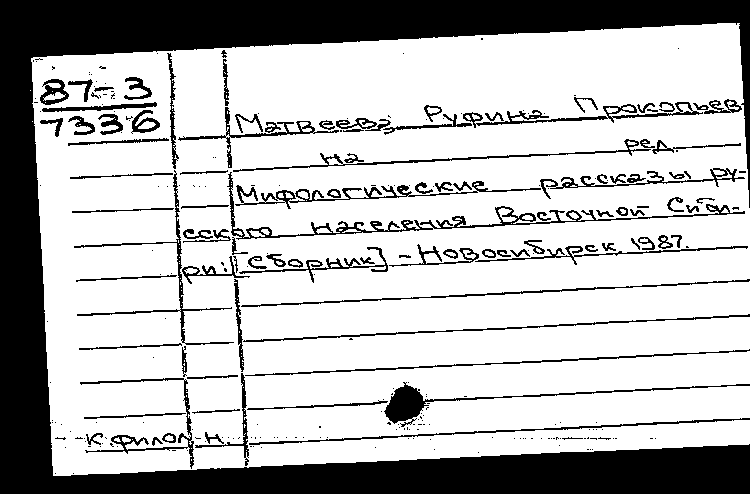 87-3
7336
Матвеева, Руфина Прокопьев-
на ред.
Мифологические рассказы ру-
сского населения Восточной Сиби-
ри: [Сборник] - Новосибирск, 1987.
к. филол. н.